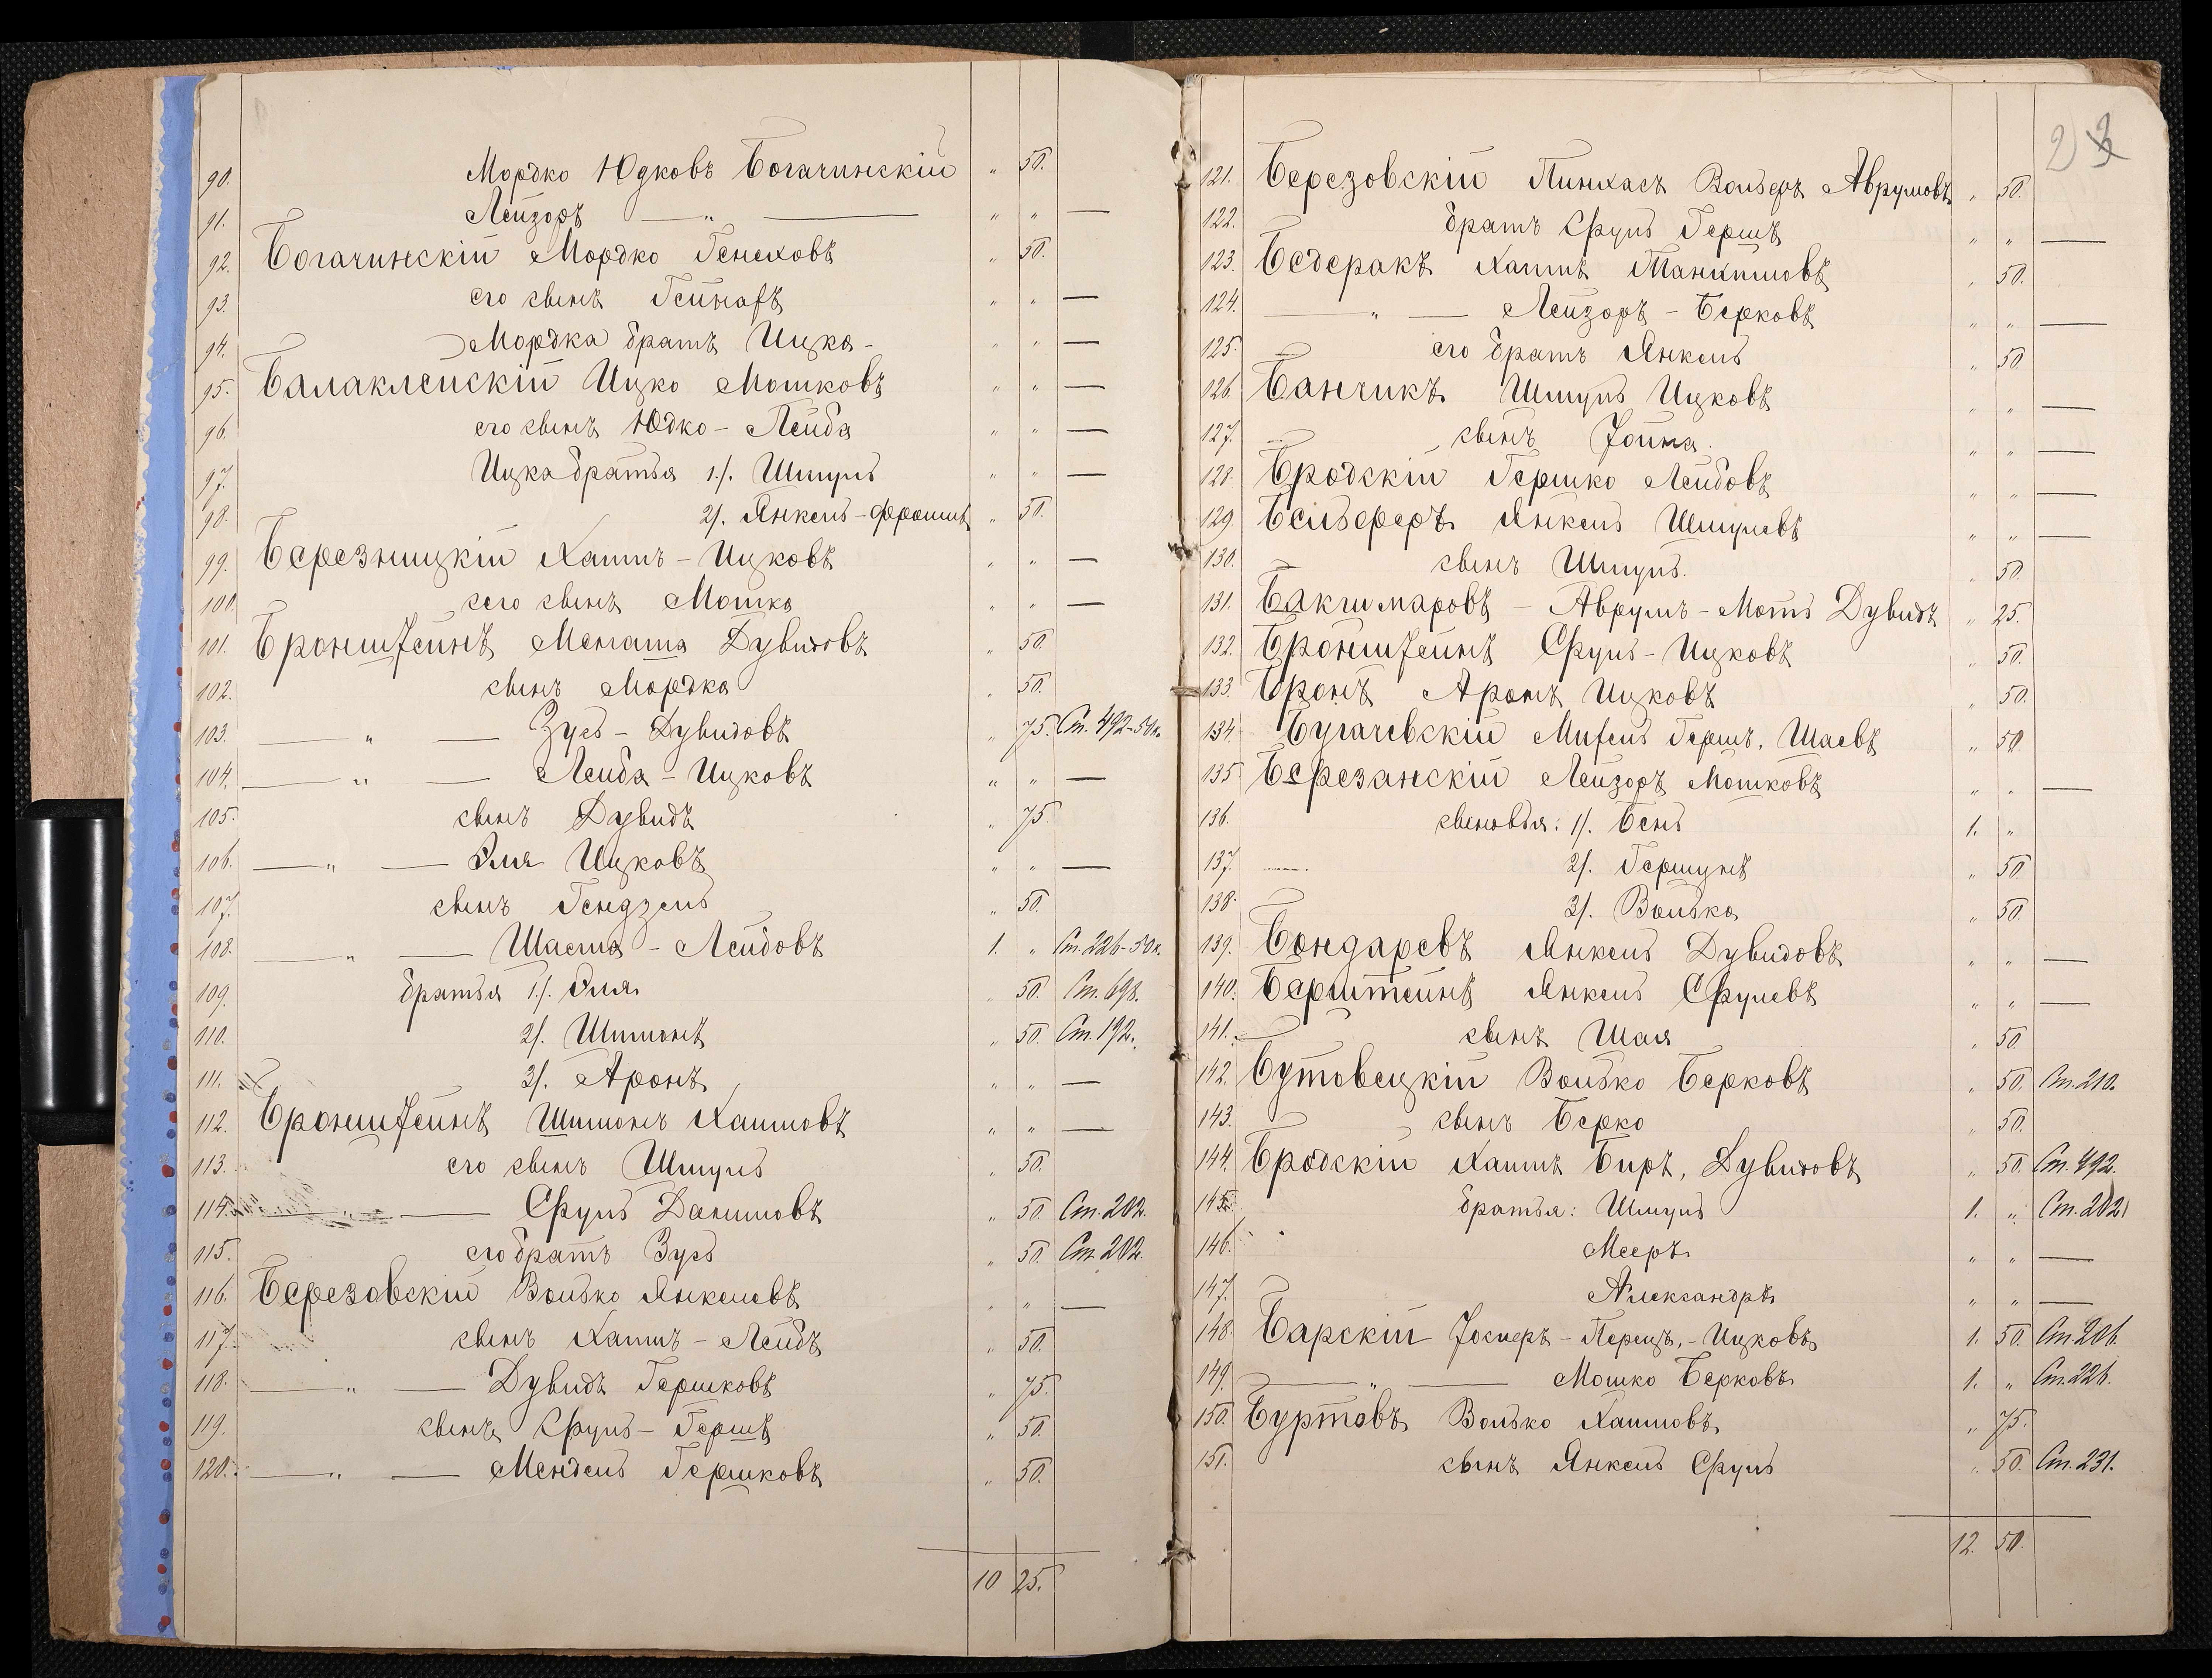 90. Мордко Юдковъ Богачинскій „ 50.
91. Лейзоръ —„— „ „ —
92. Богачинскій Мордко Генеховъ „ 50.
93. его сынъ Гейнахъ „ „ —
94. Мордка братъ Ицка - „ „ —
95. Балаклейскій Ицко Мошковъ „ „ —
96. его сынъ Юдко - Лейба „ „ —
97. Ицка братья 1/. Шмуль „ „ —
98. 2/. Янкель - Фроимъ „ 50.
99. Березницкій Хаимъ - Ицковъ „ „ —
100. сего сынъ Мошка „ „ —
101. Бронштейнъ Менаша Дувидовъ „ 50.
102. сынъ Мордка „ 50.
103. —„— Зусь - Дувидовъ „ 75. Ст. 492-50к.
104. —„— Лейба - Ицковъ „ „ —
105. сынъ Дувидъ „ 75.
106. —„— Эля Ицковъ „ „ —
107. сынъ Гендзель „ 50.
108. —„— Шлема - Лейбовъ 1. „ Ст. 226-50к.
109. братья 1/. Эля „ 50. Ст. 698.
110. 2/. Шимонъ „ 50. Ст. 192.
111. 3/. Аронъ „ „ —
112. Бронштейнъ Шимонъ Хаимовъ „ „ —
113. его сынъ Шмуль „ 50.
114. —„— Сруль Данимовъ „ 50. Ст. 202.
115. его братъ Зусь „ 50. Ст. 202.
116. Березовскій Волько Янкелевъ „ „ —
117. сынъ Хаимъ - Лейбъ „ 50.
118. —„— Дувидъ Гершковъ „ 75.
119. сынъ Сруль - Гершъ „ 50.
120. —„— Мендель Гершковъ „ 50.
10 25.
23
121. Березовскій Пинхасъ Вольфъ Аврумовъ „ 50.
122. братъ Сруль Гершъ „ „ —
123. Бедеракъ Хаимъ Танхимовъ „ 50.
124. —„— Лейзоръ - Берковъ „ „ —
125. его братъ Янкель „ 50
126. Банчикъ Шмуль Ицковъ „ „ —
127. сынъ Іойна „ „ —
128. Бродскій Гершко Лейбовъ „ „ —
129. Бейльферъ Янкель Шмулевъ „ „ —
130. сынъ Шмуль. „ 50.
131. - Аврумъ - Моть Дувидъ „ 25.
132. Бронштейнъ Сруль - Ицковъ „ 50.
133. Бронъ Аронъ Ицковъ „ 50.
134. Бугачевскій Гершъ, Шаевъ „ 50.
135 Березанскій Лейзоръ Мошковъ „ „ —
136. сыновья: 1/. Бень 1. „
137. 2/. Гершунъ „ 50
138. 3/. Волька „ 50.
139. Бондаревъ Янкель Дувидовъ „ „ —
140. Берштейнъ Янкель Срулевъ „ „ —
141. сынъ Шая „ 50
142. Бутовецкій Волько Берковъ „ 50. Ст. 210.
143. сынъ Берко „ 50.
144. Бродскій Хаимъ Биръ, Дувидовъ „ 50. Ст. 492.
145. братья: Шмуль 1. „ Ст. 202
146. Мееръ „ „ —
147. Александръ „ „ —
148. Барскій - Перецъ, - Ицковъ 1. 50. Ст. 206.
149. —„— Мошко Берковъ 1. „ Ст. 226.
150. Буртовъ Волько Хаимовъ „ 75.
151. сынъ Янкель Сруль „ 50. Ст. 231.
12. 50.